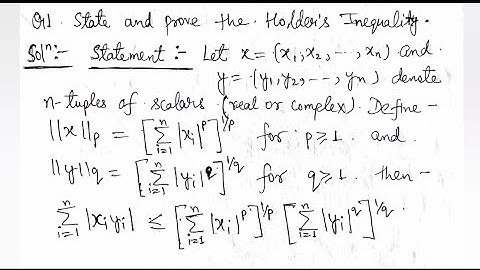 Q1. State and prove the Holder's Inequality.
Solⁿ:- Statement :- Let x = (x₁, x₂, --, xₙ) and
y = (y₁, y₂, --, yₙ) denote
n-tuples of scalars (real or complex). Define -
||x||ₚ = [∑ᵢ₌₁ⁿ |xᵢ|ᵖ]^{1/p} for p≥1. and
||y||_q = [∑ᵢ₌₁ⁿ |yᵢ|^q]^{1/q} for q≥1. then -
∑ᵢ₌₁ⁿ |xᵢyᵢ| ≤ [∑ᵢ₌₁ⁿ |xᵢ|ᵖ]^{1/p} [∑ᵢ₌₁ⁿ |yᵢ|^q]^{1/q}.